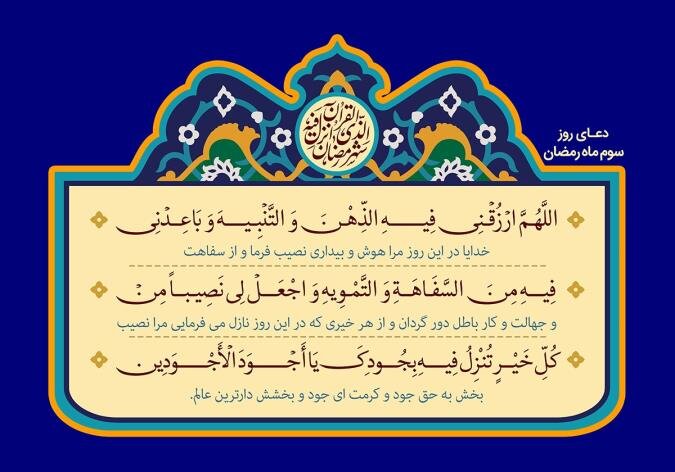 شهر رمضان الذی انزل فیه القرآن
دعـای روز
سوم ماه رمضان
اللَّهُمَّ ارْزُقْنِی فِیهِ الذِّهْنَ وَ التَّنْبِیهَ وَ بَاعِدْنِی
خدایا در این روز مرا هوش و بیداری نصیب فرما و از سفاهت
فِیهِ مِنَ السَّفَاهَةِ وَ التَّمْوِیهِ وَ اجْعَلْ لِی نَصِیباً مِنْ
و جهالت و کار باطل دور گردان و از هر خیری که در این روز نازل می فرمایی مرا نصیب
کُلِّ خَیْرٍ تُنْزِلُ فِیهِ بِجُودِکَ یَا أَجْوَدَ الْأَجْوَدِینَ
بخش به حق جود و کرمت ای جود و بخشش دارترین عالم.